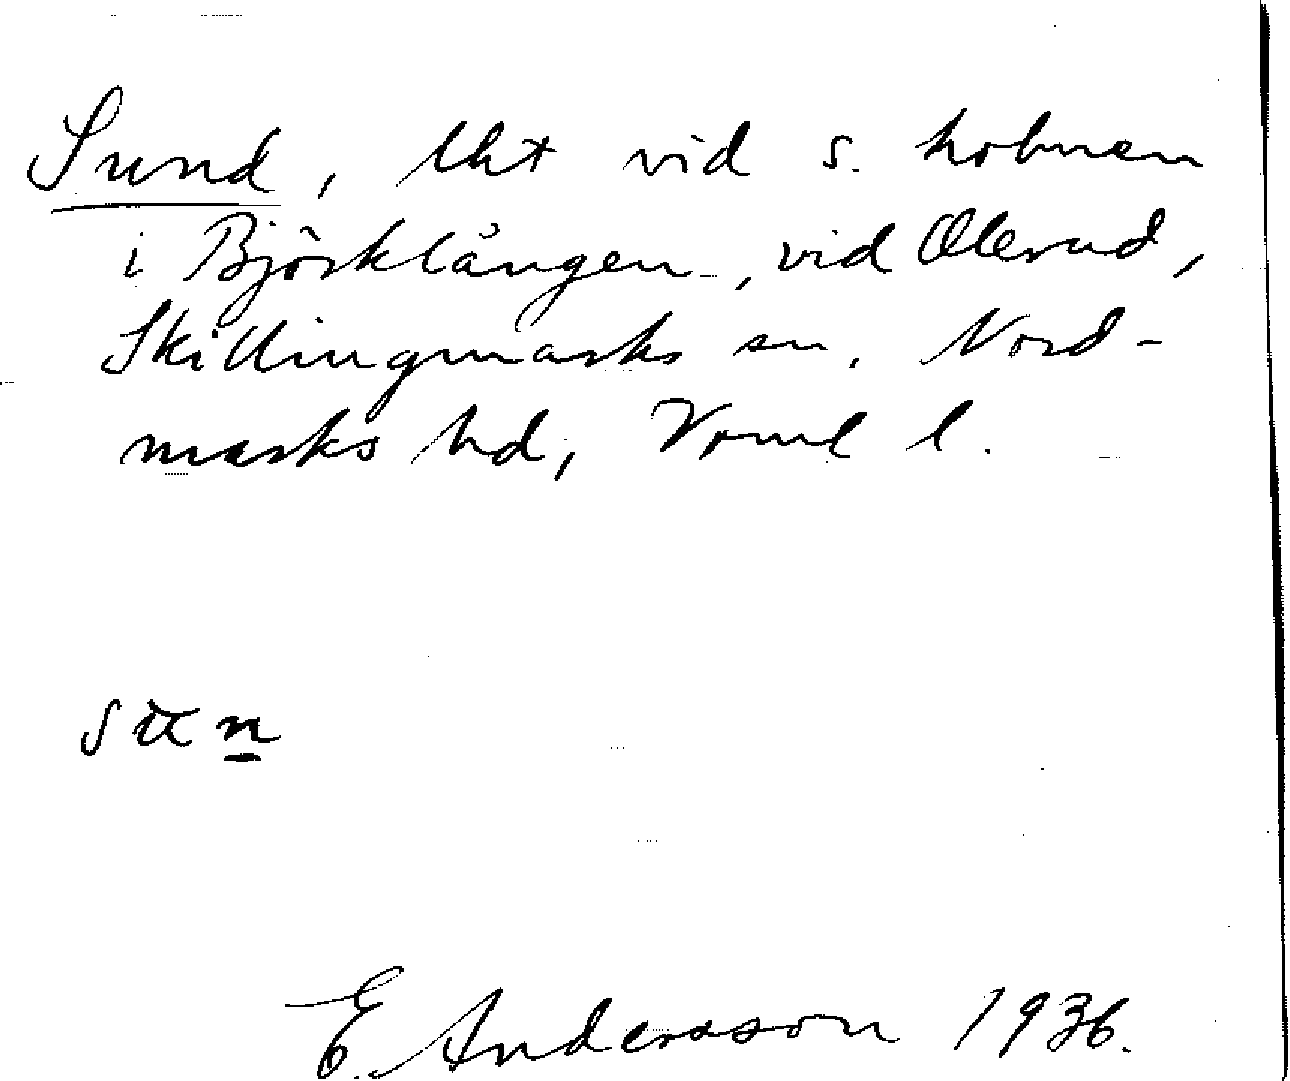 Sund, lht vid s. holmen
i Björklången, vid Olerud,
Skillingmarks sn, Nord-
marks hd, Vrml l.
E. Andersson 1936.